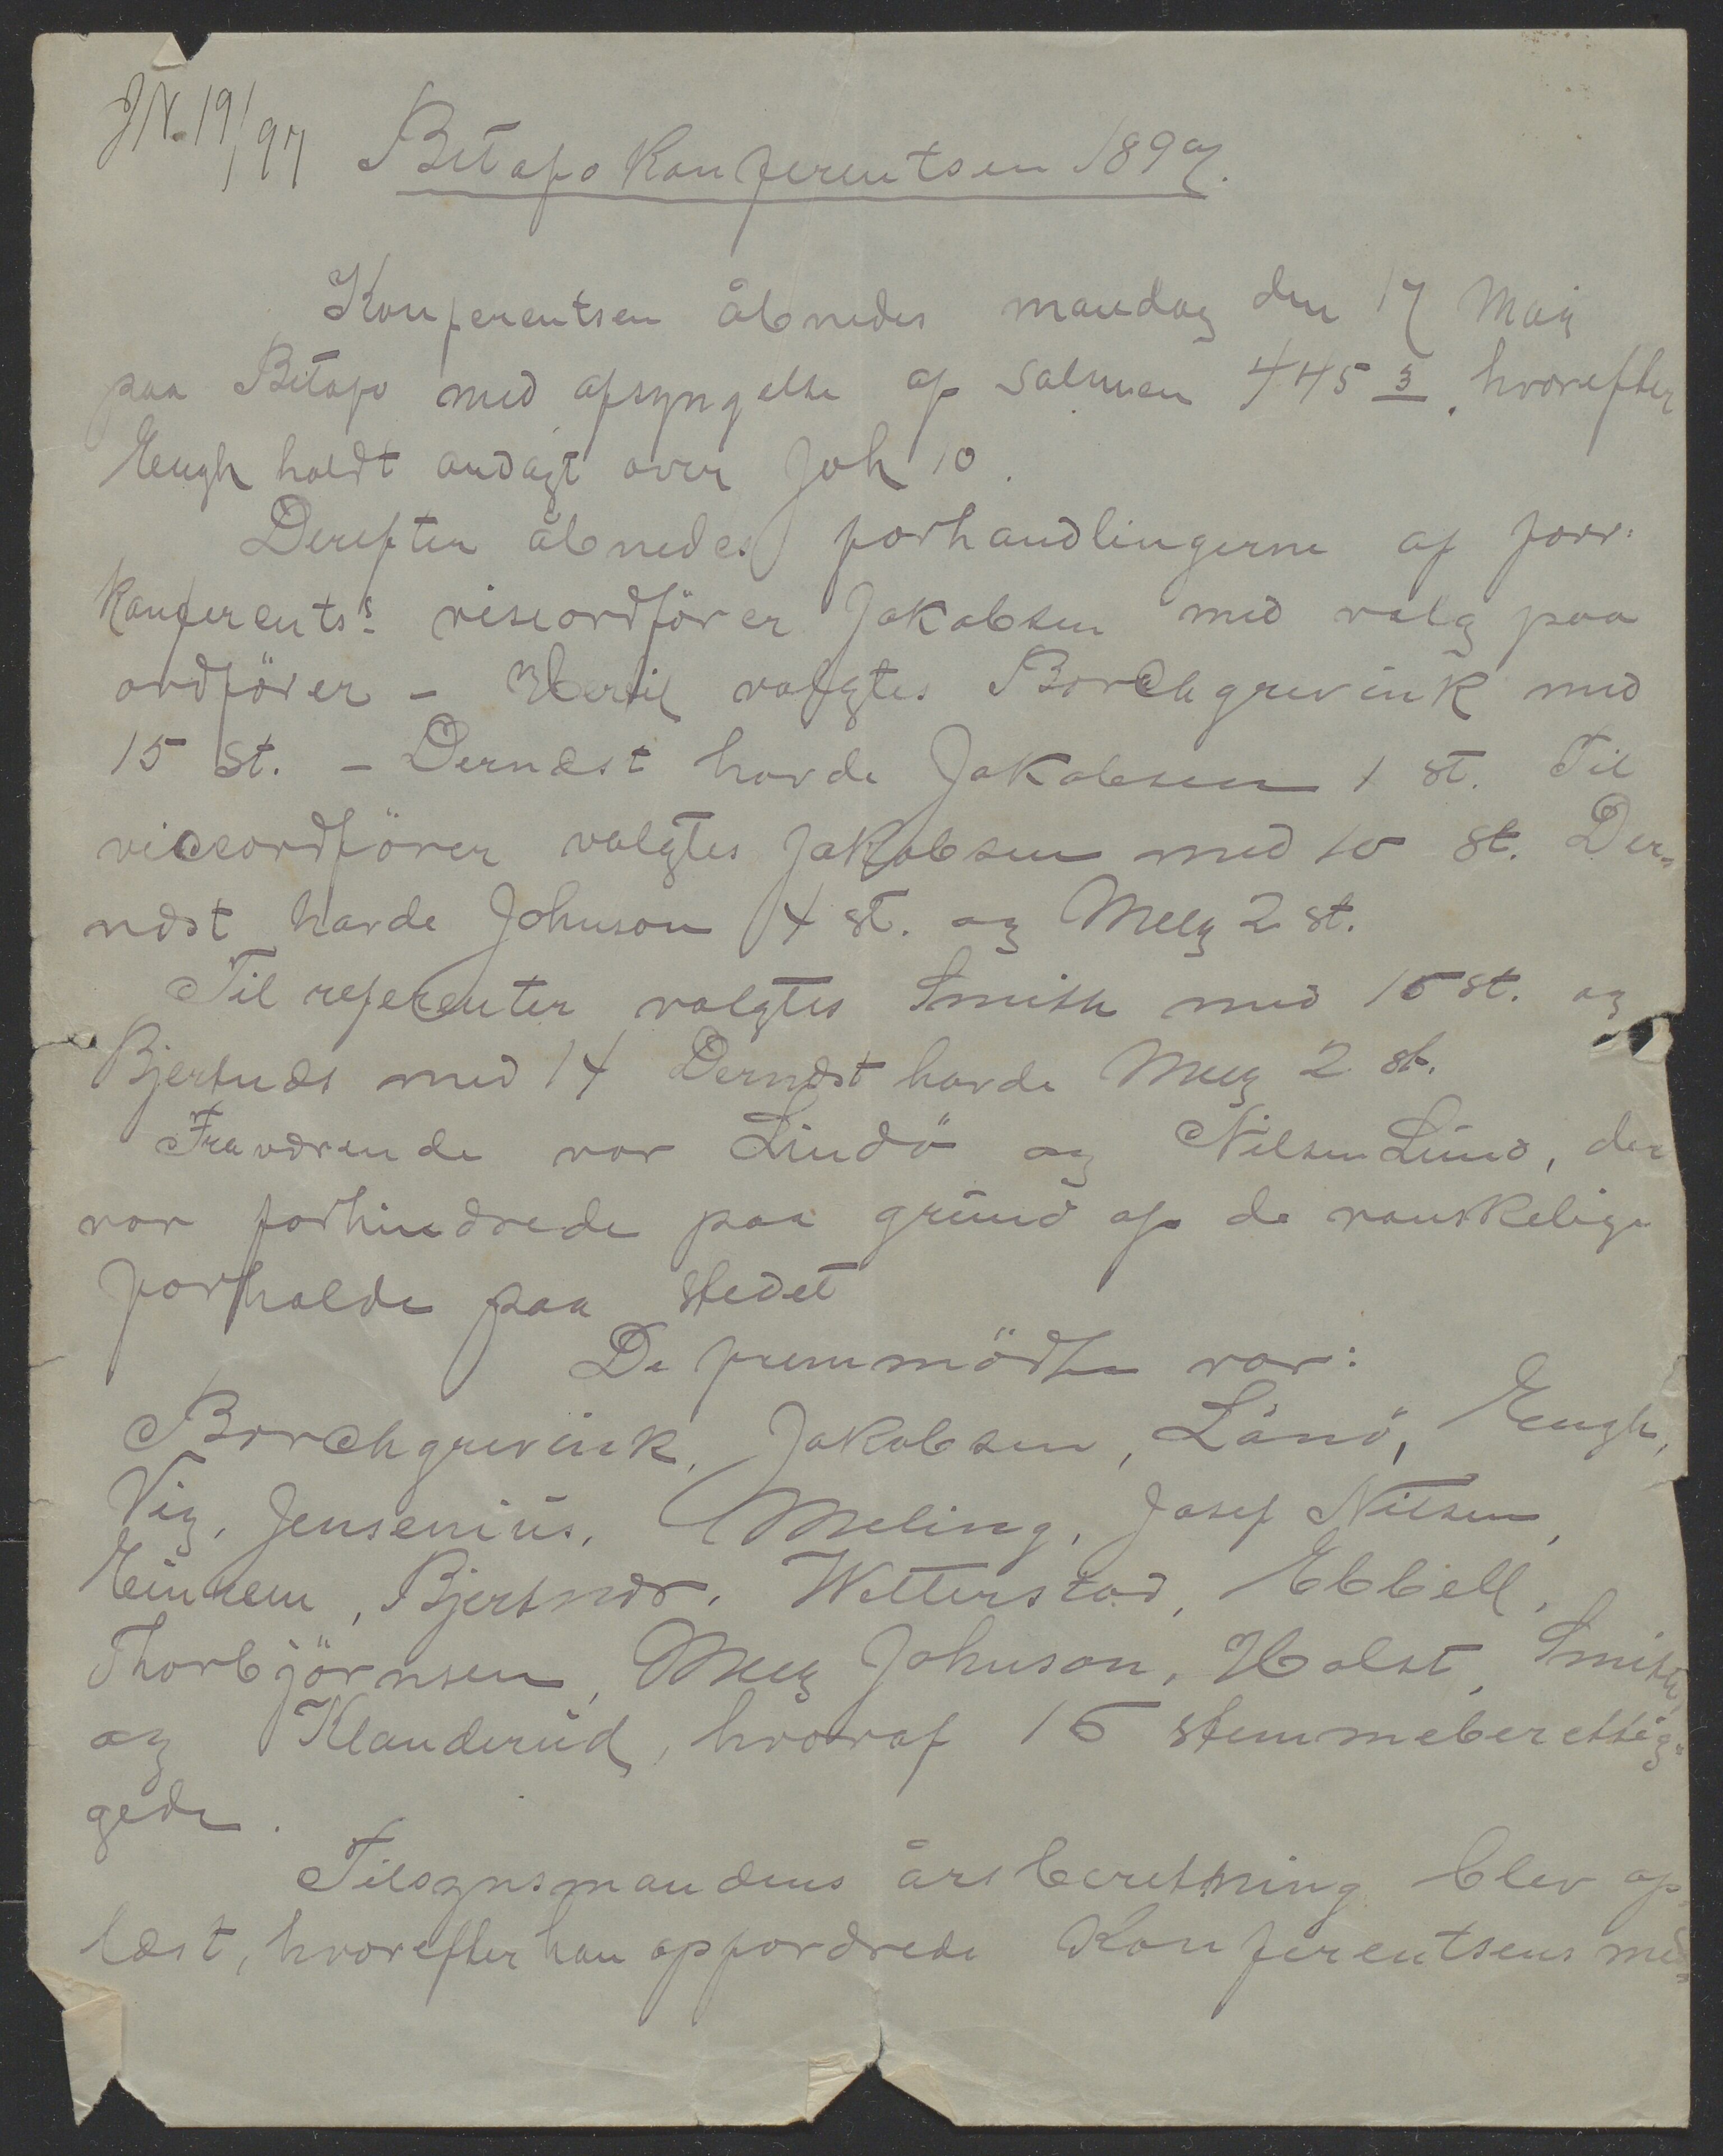 JN. 19/97
Betafo Konferentsen 1897.
Konferentsen åbnedes mandag den 17 Maij
paa Betafo med afsyngelse af Salmen 445 3. hvorefter
Engh holdt andagt over Joh 10.
Derefter åbnedes forhandlingerne af forr:
Konferents's viseordförer Jakobsen med valg paa
ordförer – Hertil valgtes Borchgrevink med
15 st. – Dernæst havde Jakobsen 1 st. Til
viceordförer valgtes Jakobsen med 10 st. Der-
næst havde Johnson 4 st. og Meeg 2 st.
Til referenter valgtes Smith med 15 st. og
Bjertnæs med 14 Dernæst havde Meeg 2 st.
Fraværende var Lindö og Nilsen Lund, der
var forhindrede paa grund af de vanskelige
forholde paa stedet
De fremmödte var:
Borchgrevink, Jakobsen, Lönö, Engh,
Vig, Jensenius, Meling, Josef Nilsen,
Einrem, Bjertnæs, Wetterstad, Ebbell,
Thorbjörnsen, Meeg Johnson, Holst, Smith,
og Klanderud, hvoraf 16 stemmeberettig-
gede.
Tilsynsmandens årsberetning blev op-
læst, hvorefter han opfordrede Konferentsens med-